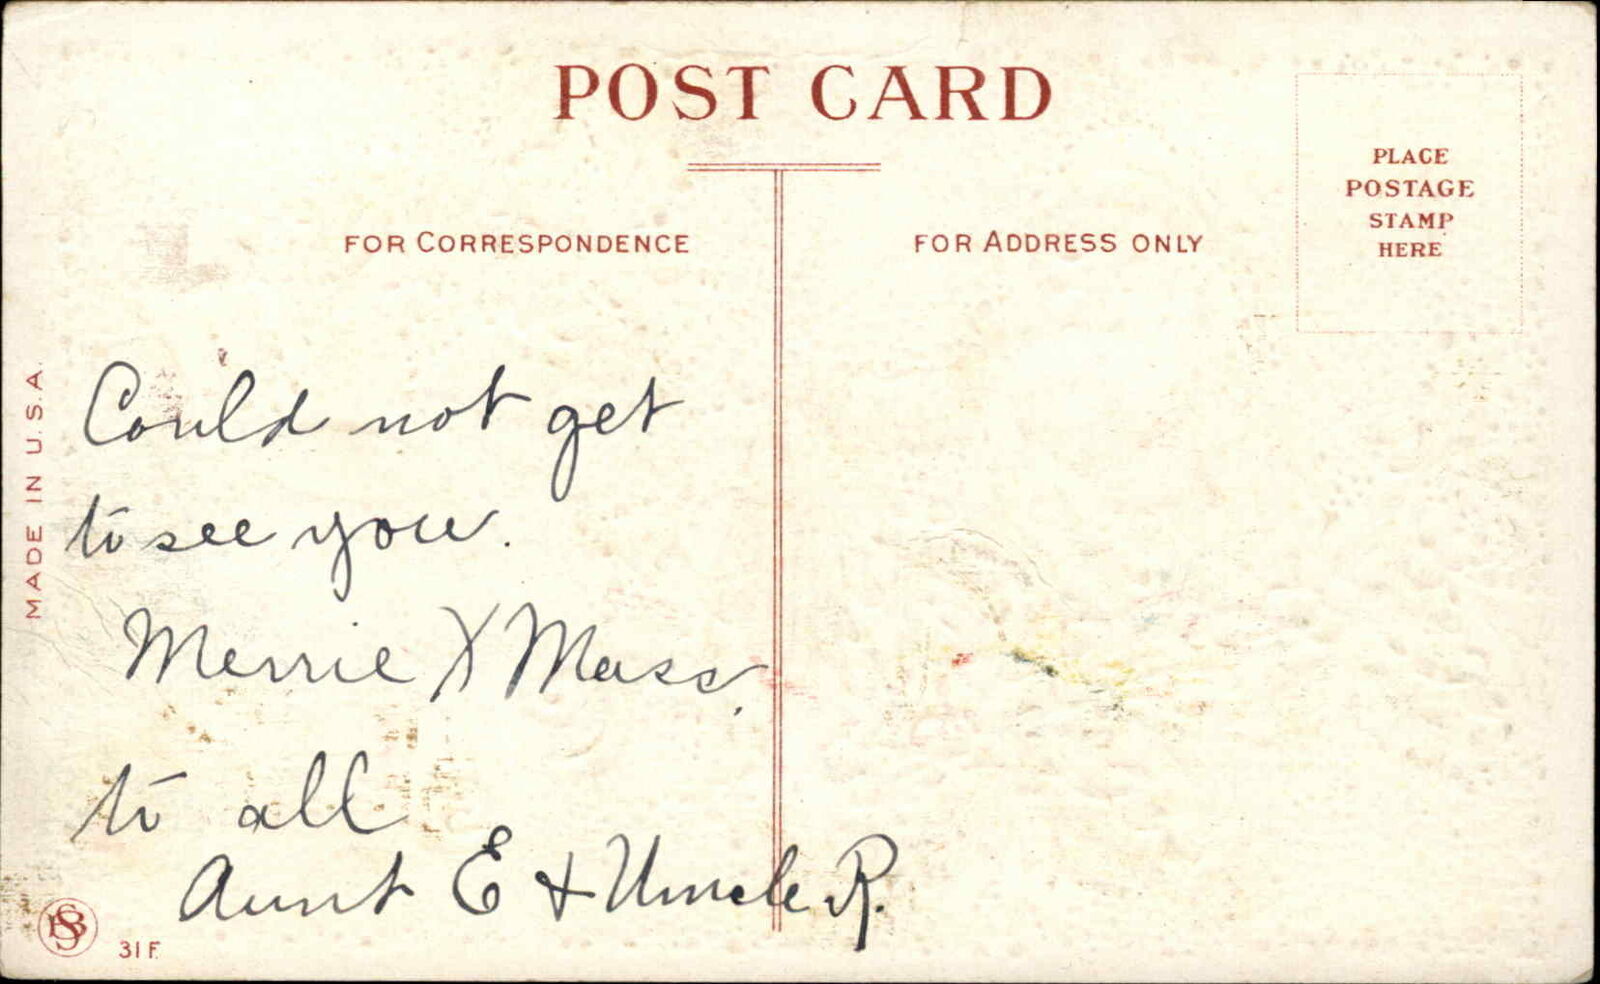 POST CARD
FOR CORRESPONDENCE
FOR ADDRESS ONLY
PLACE
POSTAGE
STAMP
HERE
MADE IN U.S.A.
Could not get
to see you.
Merrie X Mass.
to all
Aunt E & Uncle R.
31 F.